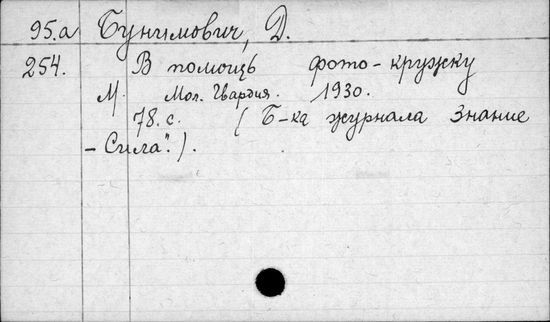 95.а Бунимович, Д.
254. В помощь фото-кружку
М. Мол. Гвардия. 1930.
78. с. (Б-ка журнала Знание
– Сила".).